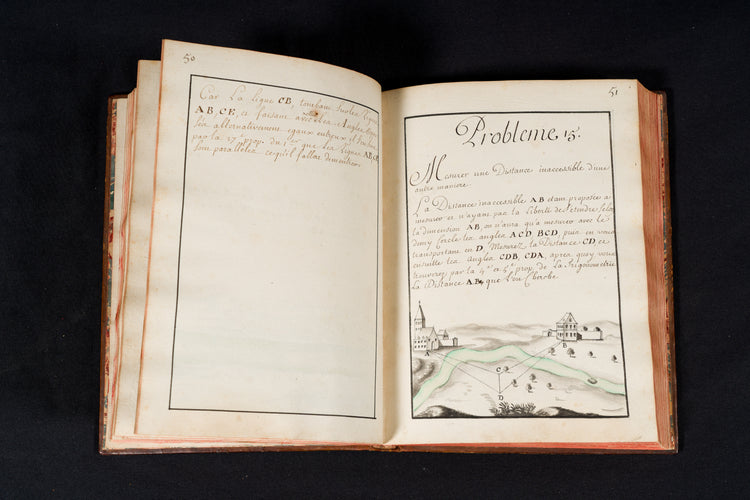 50
Car La ligne CB, tombant sur les lignes
AB, CE, et faisant avec elles les Angles
alternativement egaux entr'eux, il s'ensuit
par la 27e prop. du 1er que les lignes AB, CE
sont paralleles ce qu'il falloit demontrer
51
Probleme 15.
Mesurer une Distance inaccessible d'une
autre maniere
La Distance inaccessible AB etant proposée a
mesurer et n'ayant pas la liberté de s'etendre selon
la dimension AB, on n'aura qu'a mesurer avec le
demy Cercle les angles ACD, BCD, puis en vous
transportant en D, Mesurez la Distance CD et
ensuitte les Angles CDB, CDA, apres quoy vous
trouverez par la 4e et 5e prop. de la Trigonometrie
la Distance AB, que l'on Cherche
A
B
C
D